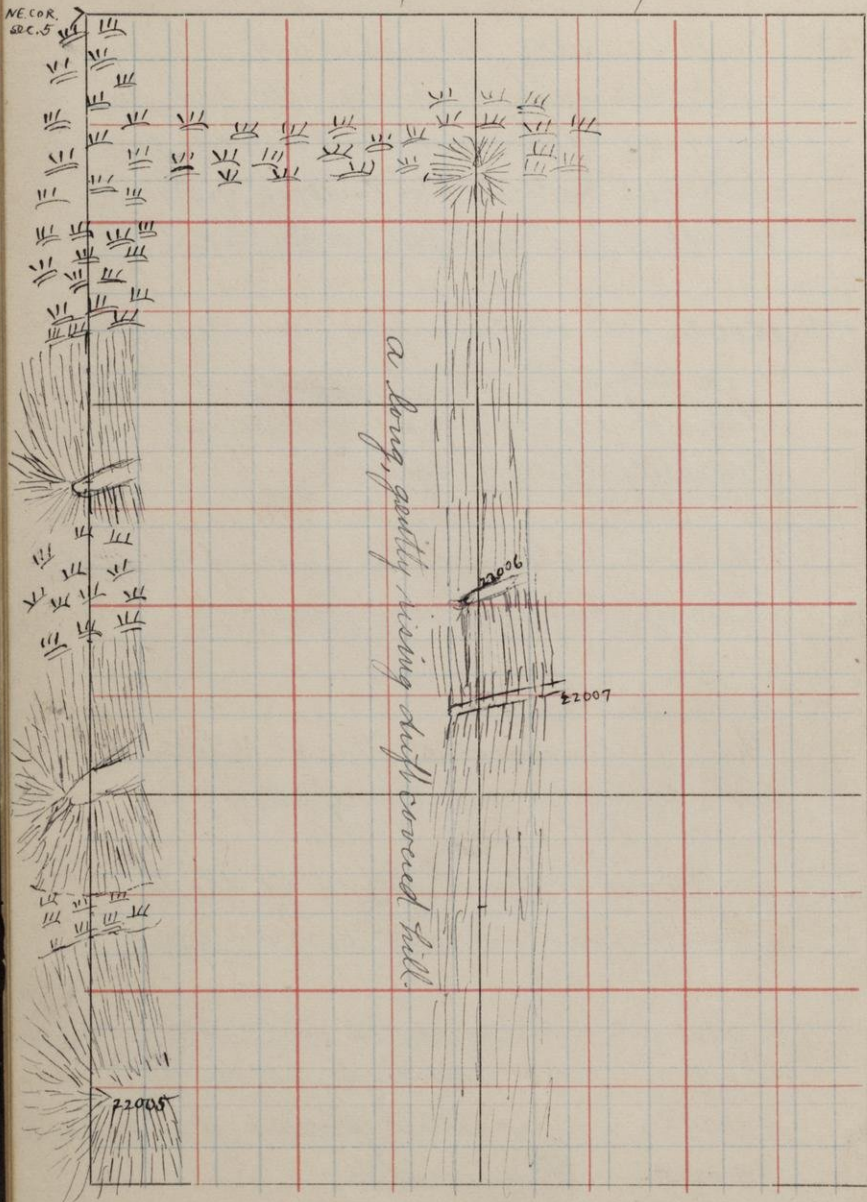 NE.COR.
SEC.5
a long, gently rising drift covered hill.
22006
22007
22005